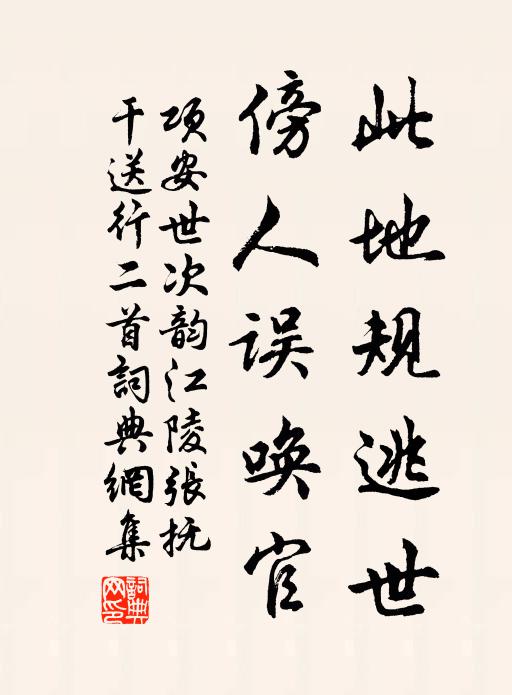 此地规逃世
傍人误唤官
项安世次韵江陵張抚
干送行二首詞典網集
詞典網印